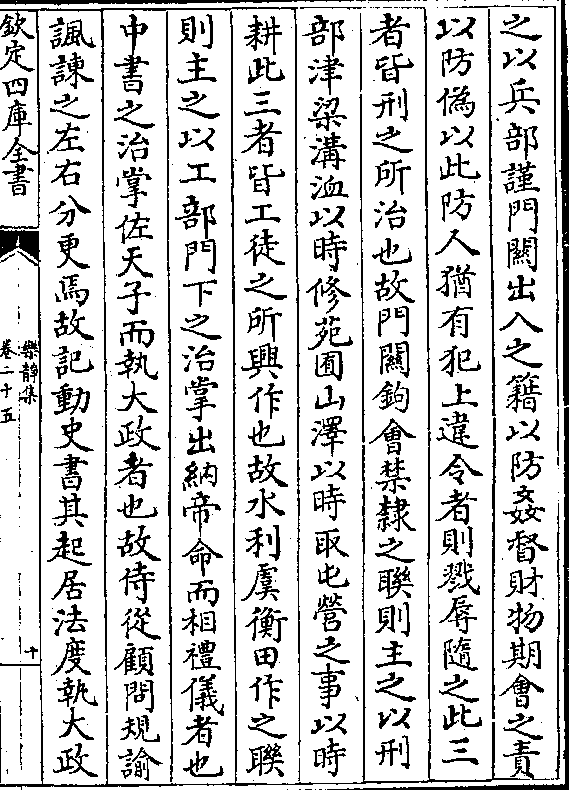 之以兵部謹門闗出入之籍以防姦督財物期㑹之責
以防偽以此防人猶有犯上違令者則戮辱隨之此三
者皆刑之所治也故門闗鉤㑹禁隸之聮則主之以刑
部津梁溝洫以時修苑囿山澤以時取屯營之事以時
耕此三者皆工徒之所興作也故水利虞衡田作之聮
則主之以工部門下之治掌出納帝命而相禮儀者也
中書之治掌佐天子而執大政者也故侍從顧問規諭
諷諌之左右分更焉故記動史書其起居法度執大政
欽定四庫全書
樂静集
卷二十五
十